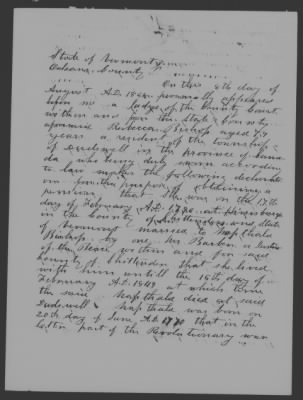 State of Vermont
Orleans County
On this 8th day of
August A.D. 18 personally appeared
before me a Judge of the County Court
within and for the State & County
aforesaid Rebecca Bishop aged 77
years a resident of the township
of Dudswell in the province of Cana
da, who being duly sworn according
to law makes the following declaration
on purpose obtaining a
pension that she was on the 17th
day of February A.D. 1790 at
in the County of Chittenden and State
of Vermont married to Napthala
Bishop by one, his Barber, a
of the peace within and for said
County of Chittenden that she lived
with him untill the 16th day of
February A.D. 1849 at which time
the said Napthala died at said
Dudswell Napthala was born on
20th day of June A.D. 1770 that in the
latter part of the Revolutionary war